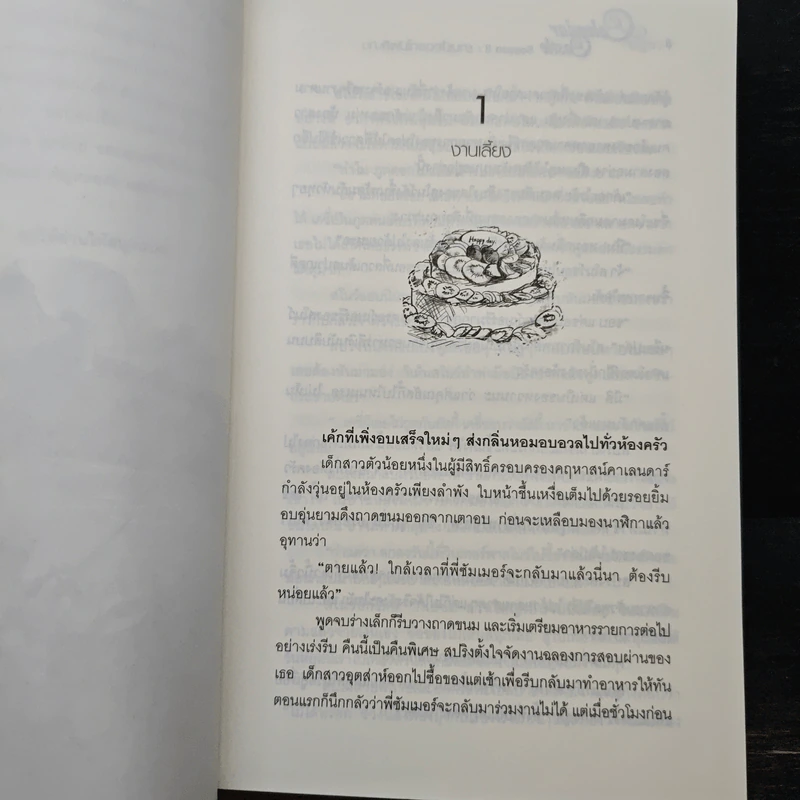 1
งานเลี้ยง
Happy day
เค้กที่เพิ่งอบเสร็จใหม่ๆ ส่งกลิ่นหอมอบอวลไปทั่วห้องครัว
เด็กสาวตัวน้อยหนึ่งในผู้มีสิทธิ์ครอบครองคฤหาสน์คาเลนดาร์
กำลังวุ่นอยู่ในห้องครัวเพียงลำพัง ใบหน้าชื้นเหงื่อเต็มไปด้วยรอยยิ้ม
อบอุ่นยามดึงถาดขนมออกจากเตาอบ ก่อนจะเหลือบมองนาฬิกาแล้ว
อุทานว่า
“ตายแล้ว! ใกล้เวลาที่พี่ซัมเมอร์จะกลับมาแล้วนี่นา ต้องรีบ
หน่อยแล้ว”
พูดจบร่างเล็กก็รีบวางถาดขนม และเริ่มเตรียมอาหารรายการต่อไป
อย่างเร่งรีบ คืนนี้เป็นคืนพิเศษ สปริงตั้งใจจัดงานฉลองการสอบผ่านของ
เธอ เด็กสาวอุตส่าห์ออกไปซื้อของแต่เช้าเพื่อรีบกลับมาทำอาหารให้ทัน
ตอนแรกก็นึกกลัวว่าพี่ซัมเมอร์จะกลับมาร่วมงานไม่ได้ แต่เมื่อชั่วโมงก่อน